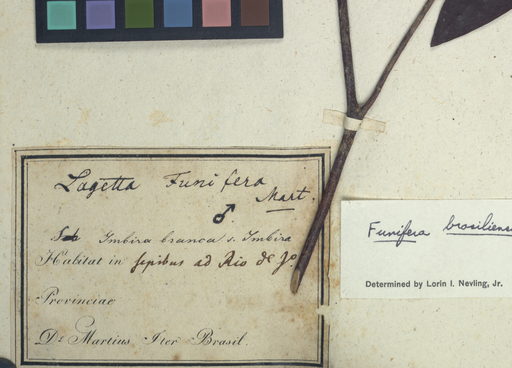 Lagetta Funifera
Mart.
♂
Imbira branca s. Imbira
Habitat in sepibus ad Rio de Jo.
Provinciae
Dr. Martius Iter Brasil.
Funifera brasiliens
Determined by Lorin I. Nevling, Jr.